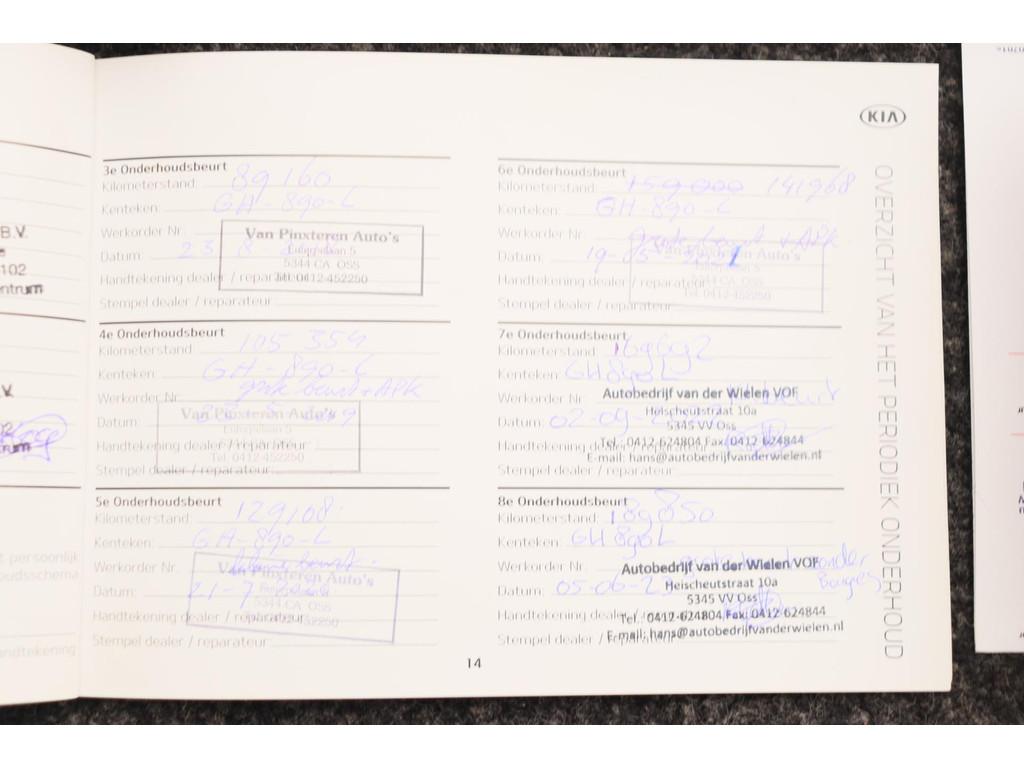 B.V.
102
ntrum
V.
rum
t persoonlijk
oudsschema
andtekening
3e Onderhoudsbeurt
Kilometerstand: 89160
Kenteken: GH-890-L
Werkorder Nr.
Van Pinxteren Auto's
Europalaan 5
5344 CA OSS
Tel. 0412-452250
Datum: 23 8
Handtekening dealer / reparateur:
Stempel dealer / reparateur:
4e Onderhoudsbeurt
Kilometerstand: 105 354
Kenteken: GH-890-L
Werkorder Nr. grote beurt + APK
Van Pinxteren Auto's
Europalaan 5
Tel. 0412-452250
Datum:
Handtekening dealer / reparateur:
Stempel dealer / reparateur:
5e Onderhoudsbeurt
Kilometerstand: 129108
Kenteken: GH-890-L
Werkorder Nr. kleine beurt
Van Pinxteren Auto's
5344 CA OSS
Datum: 21-7
Handtekening dealer / reparateur:
Stempel dealer / reparateur:
14
KIA
OVERZICHT VAN HET PERIODIEK ONDERHOUD
6e Onderhoudsbeurt
Kilometerstand: 159000 141968
Kenteken: GH-890-L
Werkorder Nr. grote beurt + APK
Van Pinxteren Auto's
Tel. 0412-452250
Datum: 19-05
Handtekening dealer / reparateur:
Stempel dealer / reparateur:
7e Onderhoudsbeurt
Kilometerstand: 169692
Kenteken: GH890L
Werkorder Nr. beurt
Autobedrijf van der Wielen VOF
Heischeutstraat 10a
5345 VV Oss
Tel. 0412-624804 Fax: 0412-624844
E-mail: hans@autobedrijfvanderwielen.nl
Datum: 02-09
Handtekening dealer / reparateur:
Stempel dealer / reparateur:
8e Onderhoudsbeurt
Kilometerstand: 189850
Kenteken: GH890L
Werkorder Nr. zonder
Bougies
Autobedrijf van der Wielen VOF
Heischeutstraat 10a
5345 VV Oss
Tel.: 0412-624804 Fax: 0412-624844
E-mail: hans@autobedrijfvanderwielen.nl
Datum: 05-06-23
Handtekening dealer / reparateur:
Stempel dealer / reparateur: